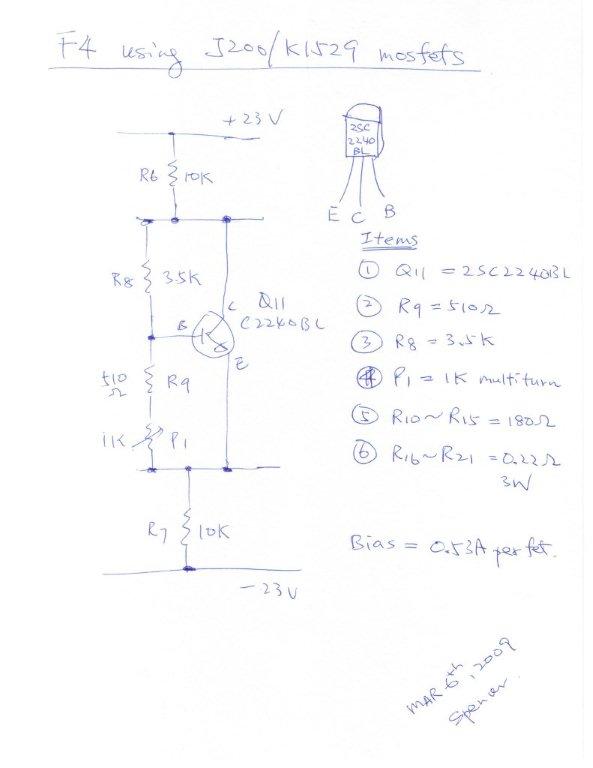 F4 using J200/K1529 mosfets
+23V
R6 10K
2SC
2240
BL
E C B
R8 3.5K
C
Q11
C2240BL
B
E
510
Ω
R9
1K P1
R7 10K
-23V
Items
① Q11 = 2SC2240BL
② R9 = 510Ω
③ R8 = 3.5K
④ P1 = 1K multiturn
⑤ R10~R15 = 180Ω
⑥ R16~R21 = 0.22Ω
3W
Bias = 0.53A per fet.
MAR 6th, 2009